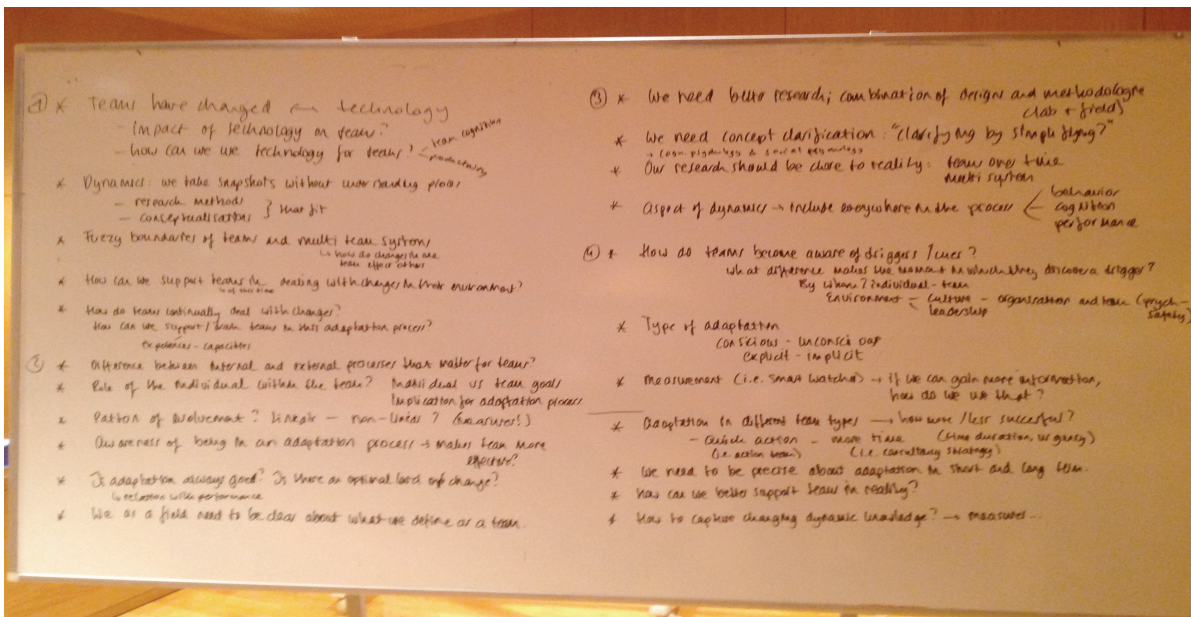 ① * Teams have changed ← technology
- Impact of technology on teams?
- how can we use technology for teams? < team cognition
* Dynamics: we take snapshots without understanding process
- research methods
- conceptualisations } that fit
* Fuzzy boundaries of teams and multi team systems
↳ how do changes in one
team effect others
* How can we support teams in dealing with changes in their environment?
* How do teams continually deal with changes?
How can we support / train teams in this adaptation process?
② * Difference between internal and external processes that matter for teams?
* Role of the individual within the team? Individual vs team goals
Implication for adaptation process
* Pattern of involvement? lineair - non-linear? (measures!)
* Awareness of being in an adaptation process → makes team more
effective?
* Is adaptation always good? Is there an optimal level of change?
↳ relation with performance
* We as a field need to be clear about what we define as a team.
③ * We need better research; combination of designs and methodologie
(lab + field)
* We need concept clarification: "clarifying by simplifying?"
* Our research should be close to reality: team over time
multi system
* aspect of dynamics → include everywhere in the process < behavior
cognition
performance
④ * How do teams become aware of driggers / cues?
What difference makes the moment in which they discover a drigger?
By whom? individual - team
Environment - culture - organisation and team (psych-
safety)
leadership
* Type of adaptation
conscious - unconscious
explicit - implicit
* measurement (i.e. smart watches) → if we can gain more information,
how do we use that?
* Adaptation in different team types → how more / less succesful?
- Quick action - more time (time duration, urgency)
(i.e. action team) (i.e. consultancy strategy)
* We need to be precise about adaptation in short and long term.
* how can we better support teams in reality?
* How to capture changing dynamic knowledge? → measures...